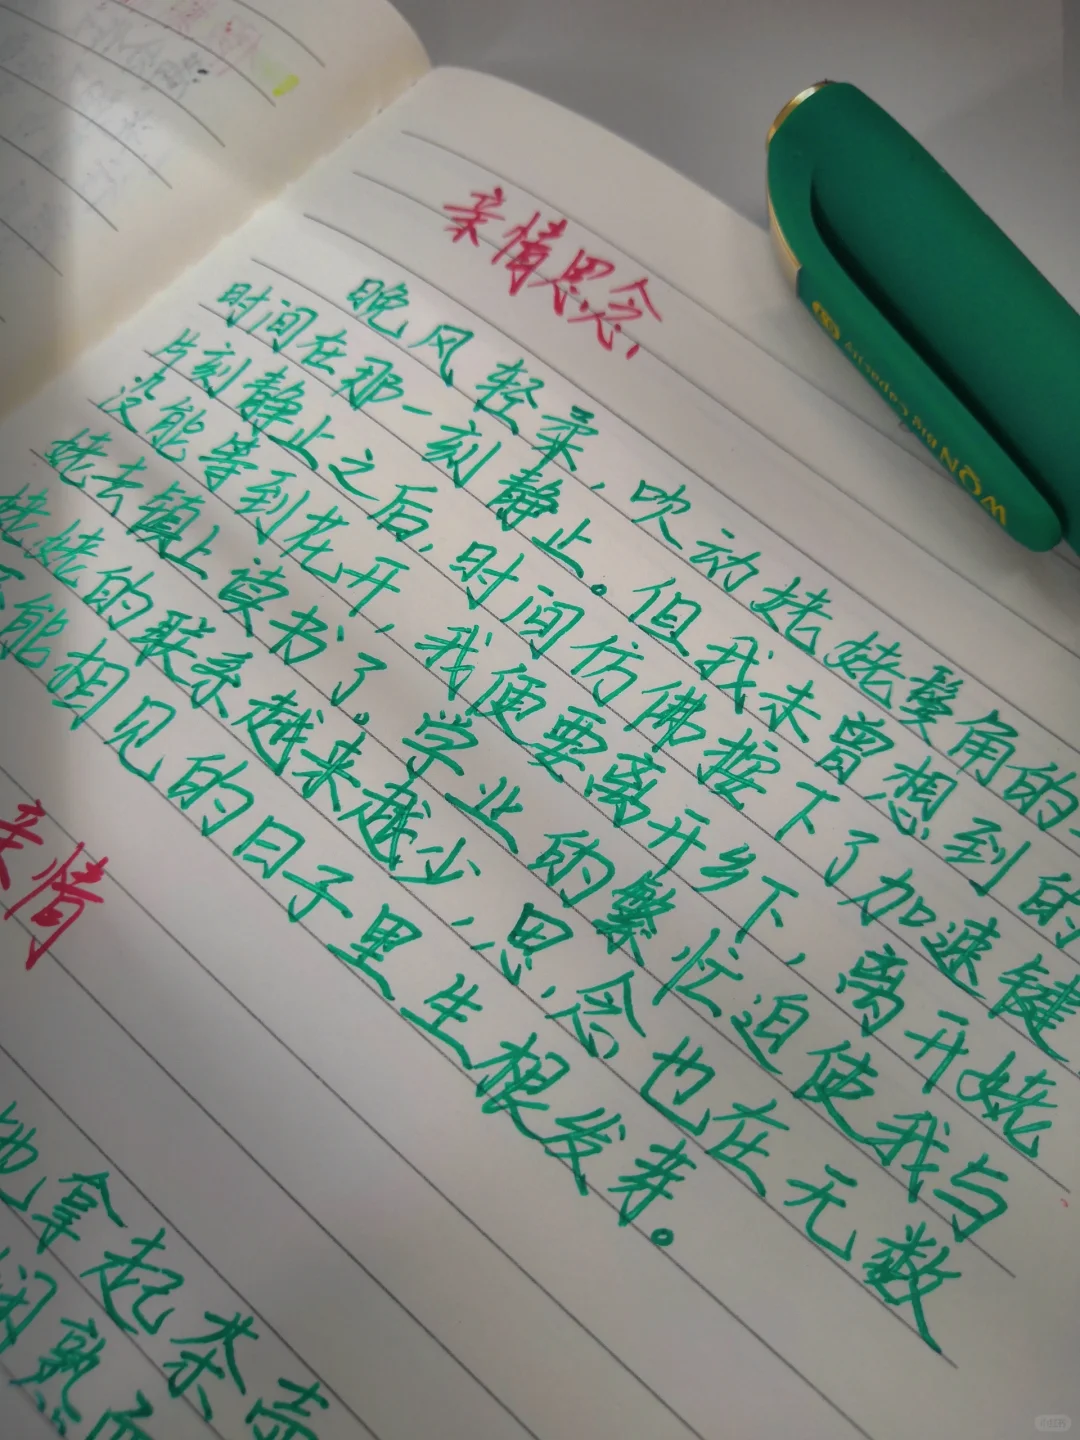 亲情思念
晚风轻柔，吹动姥姥鬓角的
时间在那一刻静止。但我未曾想到的
片刻静止之后，时间仿佛按下了加速键
没能等到花开，我便要离开乡下，离开姥
姥去镇上读书了。学业的繁忙迫使我与
姥姥的联系越来越少，思念也在无数
不能相见的日子里生根发芽。
亲情
他拿起茶壶
闲熟而
WON Big Capacity